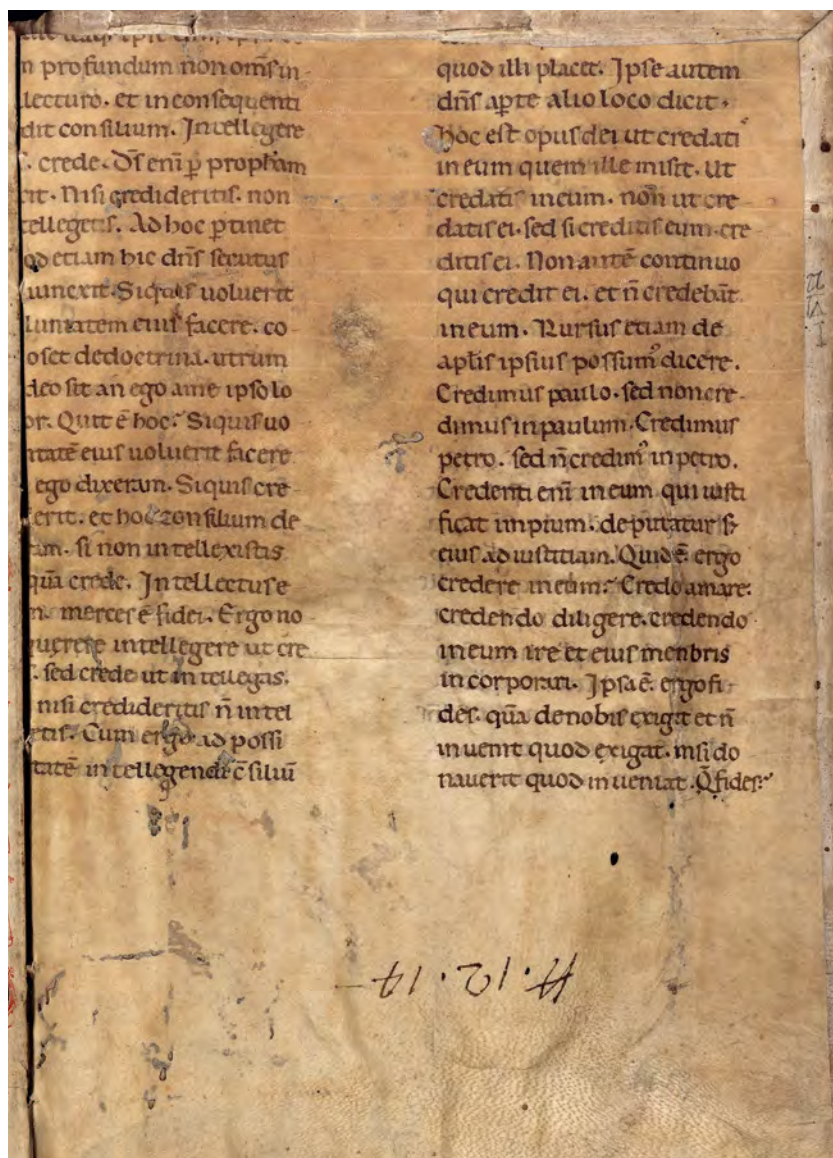 n profundum non om̅s in
lecturo. et in consequenti
dit consilium. Intellegere
. crede. D̅s eni̅ p̲ proph̅am
it. Nisi credideritis. non
tellegetis. Ad hoc p̲tinet
od etiam hic dn̅s secutus
iunexit. Siquis uoluerit
luntatem eius facere. co
oscet dedoctrina. utrum
deo sit an ego ame ipso lo
or. Quit e̅ hoc. Siquis uo
ntate̅ eius uoluerit facere
ego dixeram. Siquis cre
erit. et hoc consilium de
am. si non intellexistis
qua̅ crede. Intellectus e
n. merces e̅ fidei. Ergo no
querere intellegere ut cre
. sed crede ut intellegas.
nisi credideritis n̅ intel
etis. Cum ergo ad possi
tate̅ intellegendi c̅siliu̅
quod illi placet. Ipse autem
dn̅s ap̲te alio loco dicit.
hoc est opus dei ut credatiˢ
in eum quem ille misit. Ut
credatis ineum. non ut cre
datis ei. sed si creditis eum. cre
ditis ei. Non aute̅ continuo
qui credit ei. et n̅ credeba̅t
in eum. Rursus etiam de
apl̅is ipsius possumꝰ dicere.
Credimus paulo. sed non cre
dimus in paulum. Credimus
petro. sed n̅ credimꝰ in petro.
Credenti eni̅ in eum qui iusti
ficat impium. deputatur
eius ad iustitiam. Quid e̅ ergo
credere in eum. Credo amare.
credendo diligere. credendo
in eum ire et eius menbris
incorporari. Ipsa e̅. ergo fi
des. qua̅ de nobis exigit et n̅
inuenit quod exigat. nisi do
nauerit quod inueniat. Q̅ fides.
H.12.17